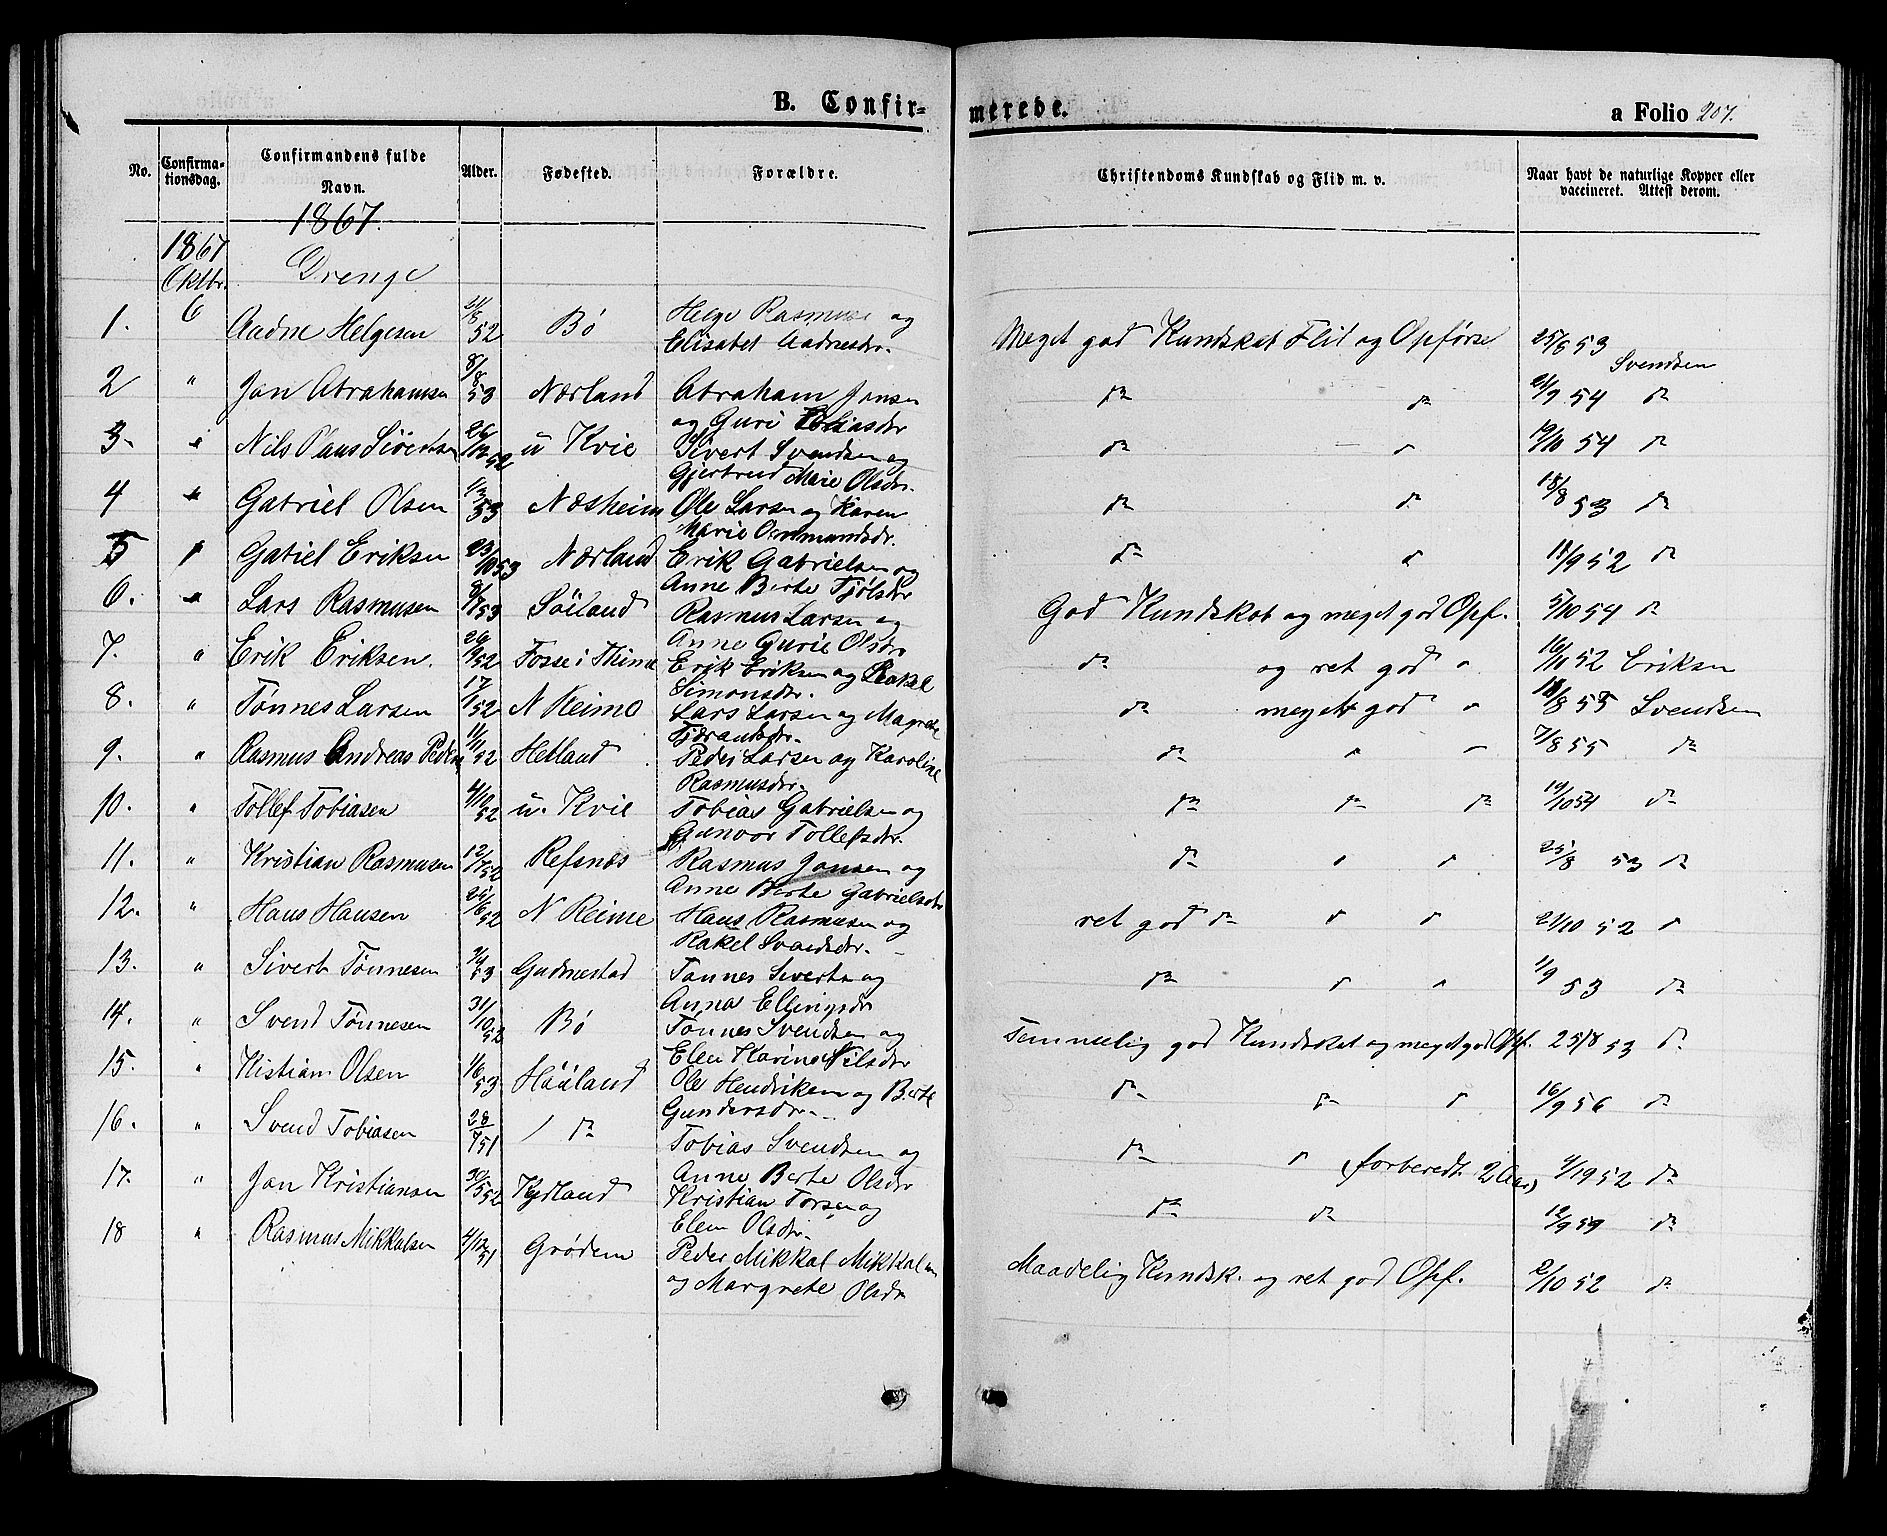 B. Confir-
merede.
a Folio 207.
No.
Confirma-
tionsdag.
Confirmandens fulde
Navn.
Alder.
Fødested.
Forældre.
Christendoms Kundskab og Flid m. v.
Naar havt de naturlige Kopper eller
vaccineret. Attest derom.
1867.
1867 Drenge
Oktbr.
1. 6 Aadne Helgesen 52 Bö Helge Rasmus og
Elisabet Aadnesdr. Meget god Kundskab Flit og Opförse 25/6 53
Svendsen
2 " Jan Abrahamsen 8/8 53 Nærland Abraham Jansen
og Guri 21/9 54 do
3. " Nils Paus Sivertsen 26/12 52 u Kvie Sivert Svendsen og
Gjertrud Marie Olsdr. 19/10 54 do
4 " Gabriel Olsen 1/3 53 Næsheim Ole Larsen og Karen
Marie Ommundsdr. 18/8 53 do
5 " Gabiel Eriksen 23/10 53 Nærland Erik Gabrielsen og
Anne Berte Tjölsdr 18/9 52 do
6. " Lars Rasmusen 53 Söiland Rasmus Larsen og
Anne Gurie Olsdr God Kundskab og meget god Opf. 5/10 54 do
7. " Erik Eriksen. 26/9 52 Fosse i Thime Erik Eriksen og Rakel
Simonsdr. do og ret god " 16/11 52 Eriksen
8. " Tønnes Larsen 17/1 52 N Reime Lars Larsen og Magrete
do meget god " 18/8 55 Svendsen
9. " Rasmus Andreas Peders 1/11 52 Hetland Peder Larsen og Karoline
Rasmusdr. do " " 7/8 55 do
10. " Tollef Tobiasen 4/10 52 u. Kvie Tobias Gabrielsen og
Gunvor Tollefsdr. do do do 19/10 54 do
11. " Kristian Rasmusen 12/7 52 Refsnes Rasmus Jansen og
Anne Berte Gabrielsdr do " " 25/8 53 do
12. " Hans Hansen 25/6 52 N Reime Hans Rasmusen og
Rakel Svendsdr. ret god do " " 21/10 52 "
13. " Sivert Tønnesen 53 Gudmestad Tønnes Sivertsen og
Anna Ellingsdr do " " 1/9 53 do
14. " Svend Tønnesen 31/10 52 Bö Tønnes Svendsen og
Elen Karine Nilsdr Temmelig god Kundskab og meget god Opf. 25/8 53 do
15. " Kistian Olsen 1/6 53 Hååland Ole Henriksen og Berte
Gundersdr. do do " 16/9 56 do
16. " Svend Tobiasen 28/7 51 do Tobias Svendsen og
Anne Berte Olsdr do " (forberedt 2 Aar) 4/10 52 do
17. " Jan Kristiansen 30/5 52 Kydland Kristian Torsen og
Elen Olsdr. do do 12/9 59 do
18 " Rasmus Mikkalsen 4/12 51 Grödem Peder Mikkal Mikkalsen
og Margrete Olsdr Maadelig Kundsk. og ret god Opf. 2/10 52 do